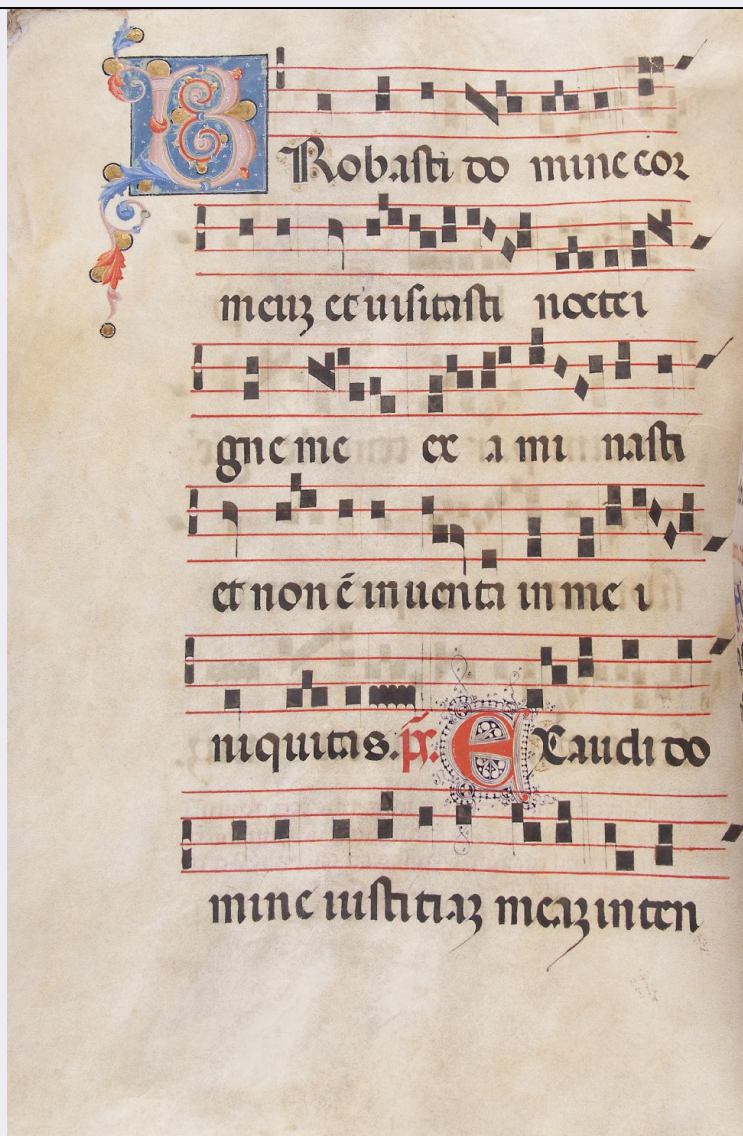 BRobasti do mine cor
meuz et uisitasti nocte i
gne me ex a mi nasti
et non ē inuenta in me i
niquitas. p̄s. EXaudi do
mine iustitiaz meaz inten